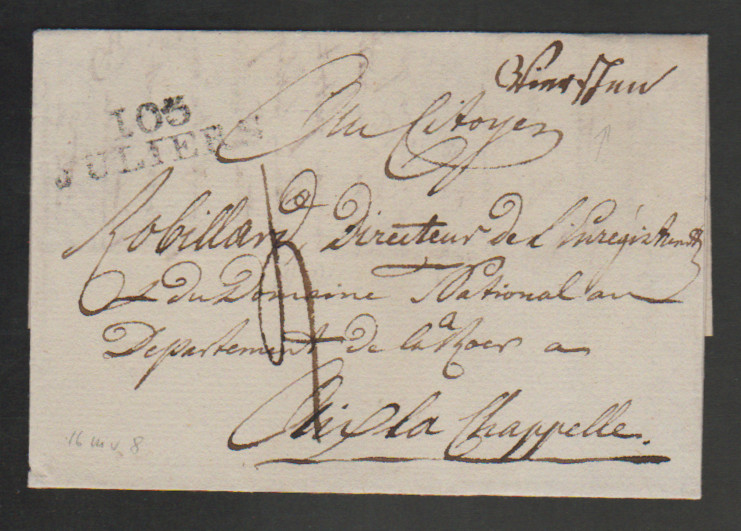 Viersen
105
JULIERS
Au Citoyen
Robillard Directeur de l'Enregistrement
& du Domaine National au
Departement de la Roer a
Aix la Chappelle.